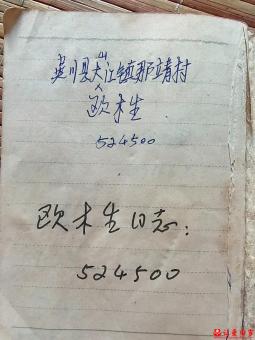 吴川县大山江镇那靖村
欧木生
524500
欧木生日志:
524500